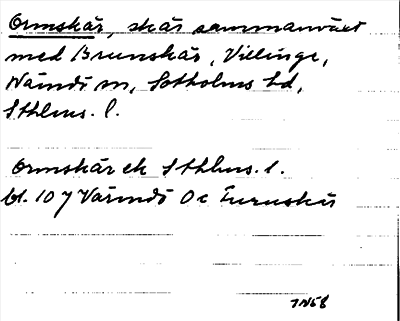 Ormskär, skär sammanväxt
med Brunskär, Villinge,
Nämdö sn, Sotholms hd,
Sthlms. l.
Ormskär ek Sthlms. l.
bl. 107 Värmdö Oc Furuskär